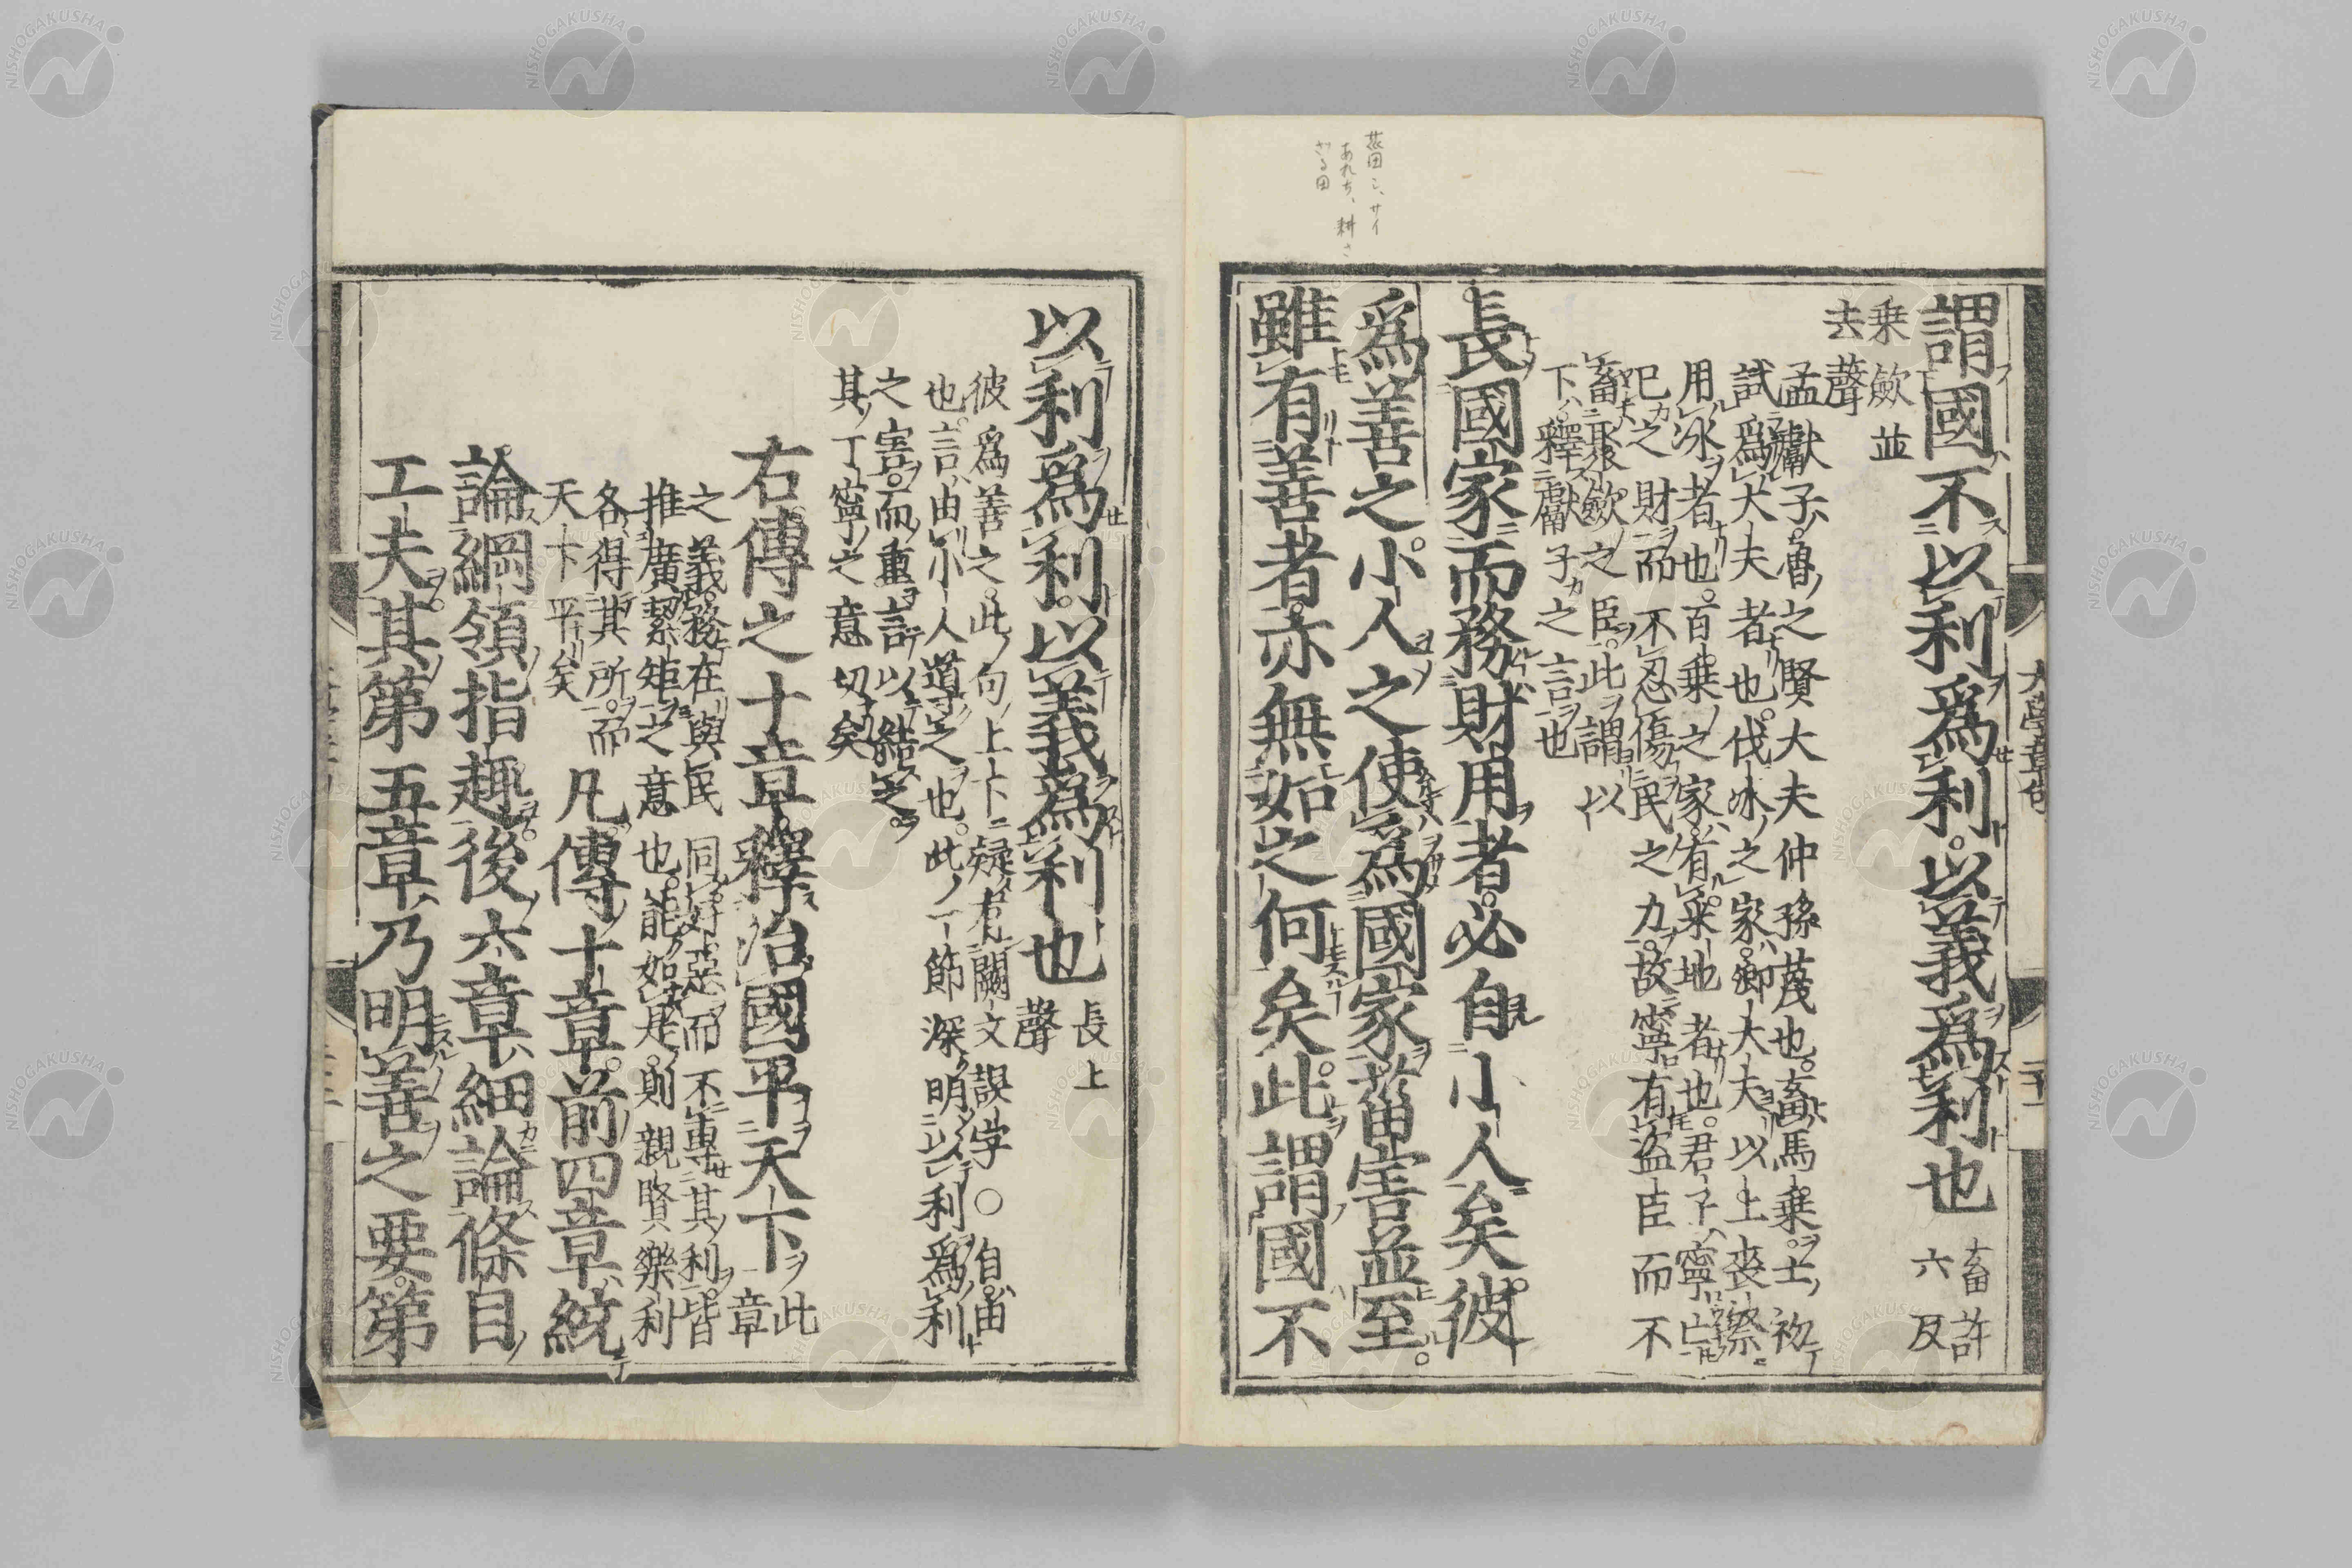 菑田シ、サイ
あれち、耕さ
ざる田
謂國不以利爲利。以義爲利也
畜許
六反
乗歛並
去聲
孟獻子魯之賢大夫仲孫蔑也。畜馬乗。士初
試爲大夫者也。伐冰之家。卿大夫以上喪祭
用冰者也。百乗之家。有采地者也。君子寧亡
己之財而不忍傷民之力。故寧有盗臣而不
畜聚歛之臣。此謂以
下釋獻子之言也
長國家而務財用者。必自小人矣。彼
爲善之。小人之使爲國家。菑害並至。
雖有善者。亦無如之何矣。此謂國不
大學章句
以利爲利。以義爲利也
長上
聲
彼爲善之。此句上下疑有闕文誤字○自由
也。言由小人導之也。此一節深明以利爲利
之害。而重言以結之。
其丁寧之意切矣
右傳之十章。釋治國平天下
此
章
之義。務在與民同好惡。而不專其利。皆
推廣絜矩之意也。能如是。則親賢樂利
各得其所。而
天下平矣
凡傳十章。前四章統
論綱領指趣。後六章。細論條目
工夫。其第五章。乃明善之要。第
NISHOGAKUSHA